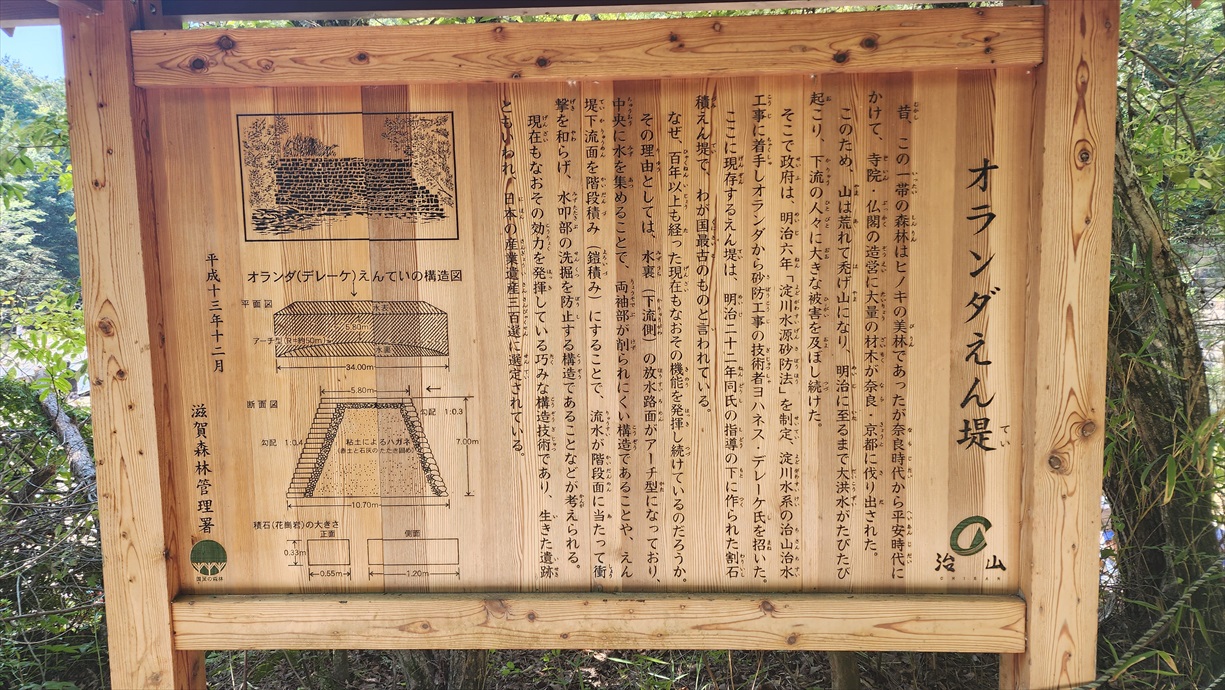 オランダえん堤
てい
昔、この一帯の森林はヒノキの美林であったが奈良時代から平安時代に
かけて、寺院・仏閣の造営に大量の材木が奈良・京都に伐り出された。
このため、山は荒れて禿げ山になり、明治に至るまで大洪水がたびたび
起こり、下流の人々に大きな被害を及ぼし続けた。
そこで政府は、明治六年「淀川水源砂防法」を制定、淀川水系の治山治水
工事に着手しオランダから砂防工事の技術者ヨハネス・デレーケ氏を招いた。
ここに現存するえん堤は、明治二十二年同氏の指導の下に作られた割石
積えん堤で、わが国最古のものと言われている。
なぜ、百年以上も経った現在もなおその機能を発揮し続けているのだろうか。
その理由としては、水裏（下流側）の放水路面がアーチ型になっており、
中央に水を集めることで、両袖部が削られにくい構造であることや、えん
堤下流面を階段積み（鎧積み）にすることで、流水が階段面に当たって衝
撃を和らげ、水叩部の洗掘を防止する構造であることなどが考えられる。
現在もなおその効力を発揮している巧みな構造技術であり、生きた遺跡
ともいわれ、日本の産業遺産三百選に選定されている。
治山
CHISAN
オランダ(デレーケ)えんていの構造図
平面図
水表
5.80m
アーチ型(R=約50m)
水裏
34.00m
断面図
5.80m
勾配 1:0.3
勾配 1:0.4
粘土によるハガネ
(赤土と石灰のたたき固め)
7.00m
10.70m
積石(花崗岩)の大きさ
正面
側面
0.33m
0.55m
1.20m
平成十三年十二月
滋賀森林管理署
国民の森林